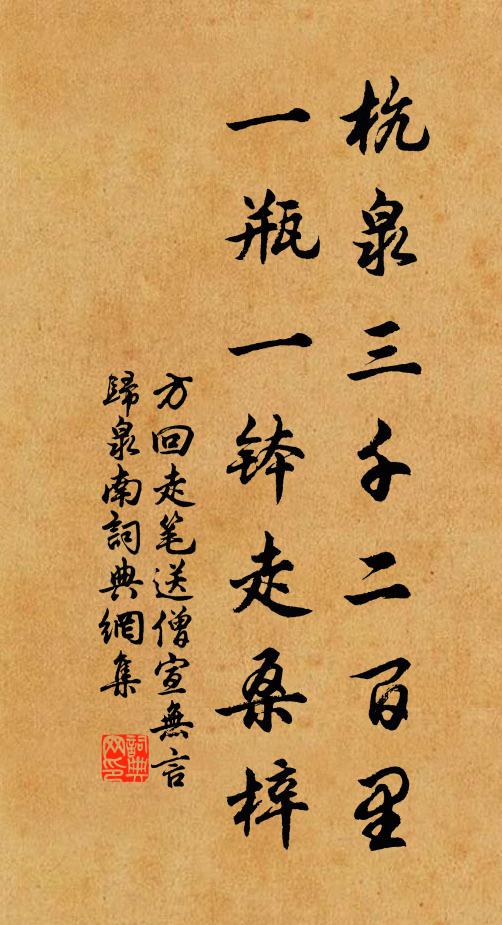 杭泉三千二百里
一瓶一钵走桑梓
方回走笔送僧宣無言
歸泉南詞典網集
詞典网印